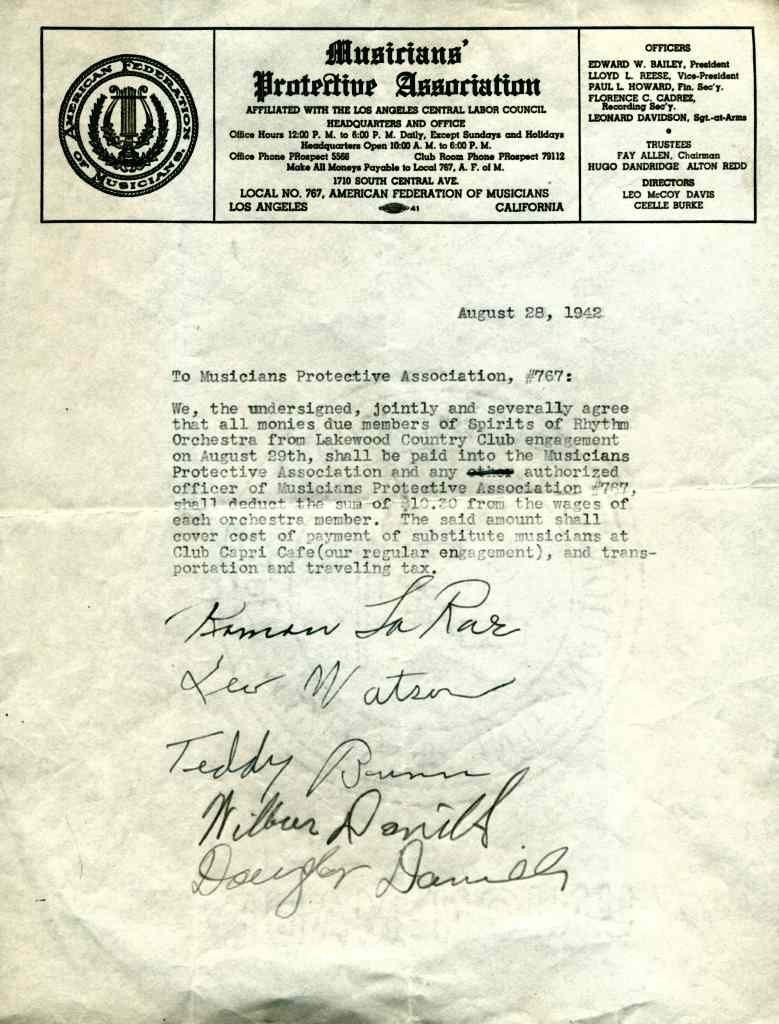 AMERICAN FEDERATION
OF MUSICIANS
Musicians'
Protective Association
AFFILIATED WITH THE LOS ANGELES CENTRAL LABOR COUNCIL
HEADQUARTERS AND OFFICE
Office Hours 12:00 P. M. to 6:00 P. M. Daily, Except Sundays and Holidays
Headquarters Open 10:00 A. M. to 6:00 P. M.
Office Phone PRospect 5568 Club Room Phone PRospect 79112
Make All Moneys Payable to Local 767, A. F. of M.
1710 SOUTH CENTRAL AVE.
LOCAL NO. 767, AMERICAN FEDERATION OF MUSICIANS
LOS ANGELES 41 CALIFORNIA
OFFICERS
EDWARD W. BAILEY, President
LLOYD L. REESE, Vice-President
PAUL L. HOWARD, Fin. Sec'y.
FLORENCE C. CADREZ,
Recording Sec'y.
LEONARD DAVIDSON, Sgt.-at-Arms
TRUSTEES
FAY ALLEN, Chairman
HUGO DANDRIDGE ALTON REDD
DIRECTORS
LEO McCOY DAVIS
CEELLE BURKE
August 28, 1942
To Musicians Protective Association, #767:
We, the undersigned, jointly and severally agree
that all monies due members of Spirits of Rhythm
Orchestra from Lakewood Country Club engagement
on August 29th, shall be paid into the Musicians
Protective Association and any other authorized
officer of Musicians Protective Association #767,
shall deduct the sum of $10.20 from the wages of
each orchestra member. The said amount shall
cover cost of payment of substitute musicians at
Club Capri Cafe(our regular engagement), and trans-
portation and traveling tax.
Roman La Rae
Leo Watson
Teddy Bunn
Wilbur Daniels
Douglas Daniels